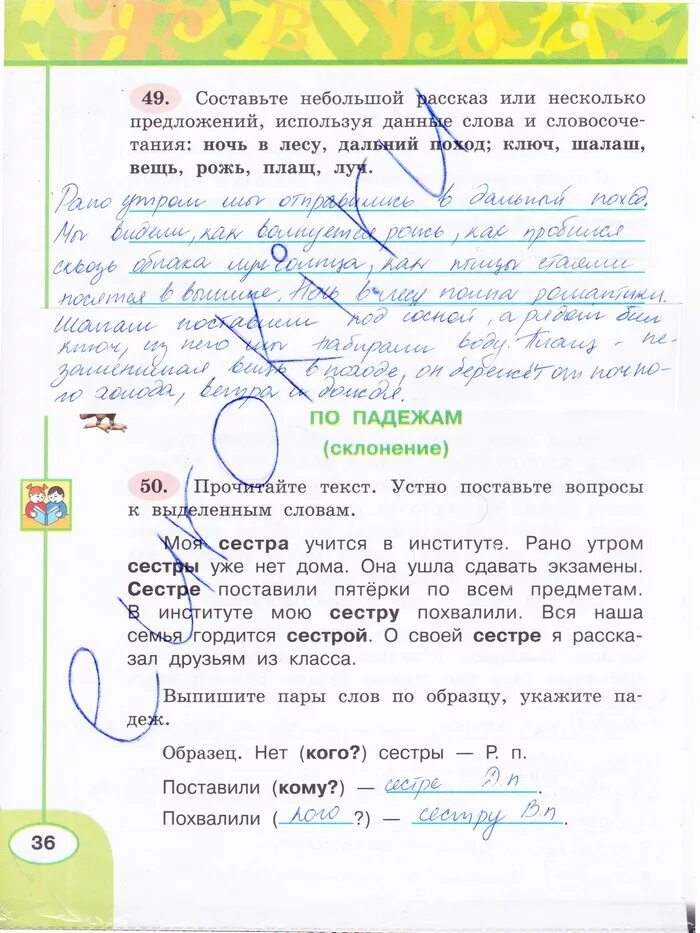 49. Составьте небольшой рассказ или несколько
предложений, используя данные слова и словосоче-
тания: ночь в лесу, дальний поход; ключ, шалаш,
вещь, рожь, плащ, луч.
Рано утром мы отправились в дальний поход.
Мы видели, как волнуется рожь, как пробился
сквозь облака луч солнца, как птицы стаями
носятся в вышине. Ночь в лесу полна романтики.
Шалаш поставили под сосной, а рядом был
ключ, из него мы набирали воду. Плащ - не-
заменимая вещь в походе, он бережёт от ночно-
го холода, ветра и дождя.
ПО ПАДЕЖАМ
(склонение)
50. Прочитайте текст. Устно поставьте вопросы
к выделенным словам.
Моя сестра учится в институте. Рано утром
сестры уже нет дома. Она ушла сдавать экзамены.
Сестре поставили пятёрки по всем предметам.
В институте мою сестру похвалили. Вся наша
семья гордится сестрой. О своей сестре я расска-
зал друзьям из класса.
Выпишите пары слов по образцу, укажите па-
деж.
Образец. Нет (кого?) сестры — Р. п.
Поставили (кому?) — сестре Д.п.
Похвалили (кого?) — сестру В.п.
36
euroki.ru